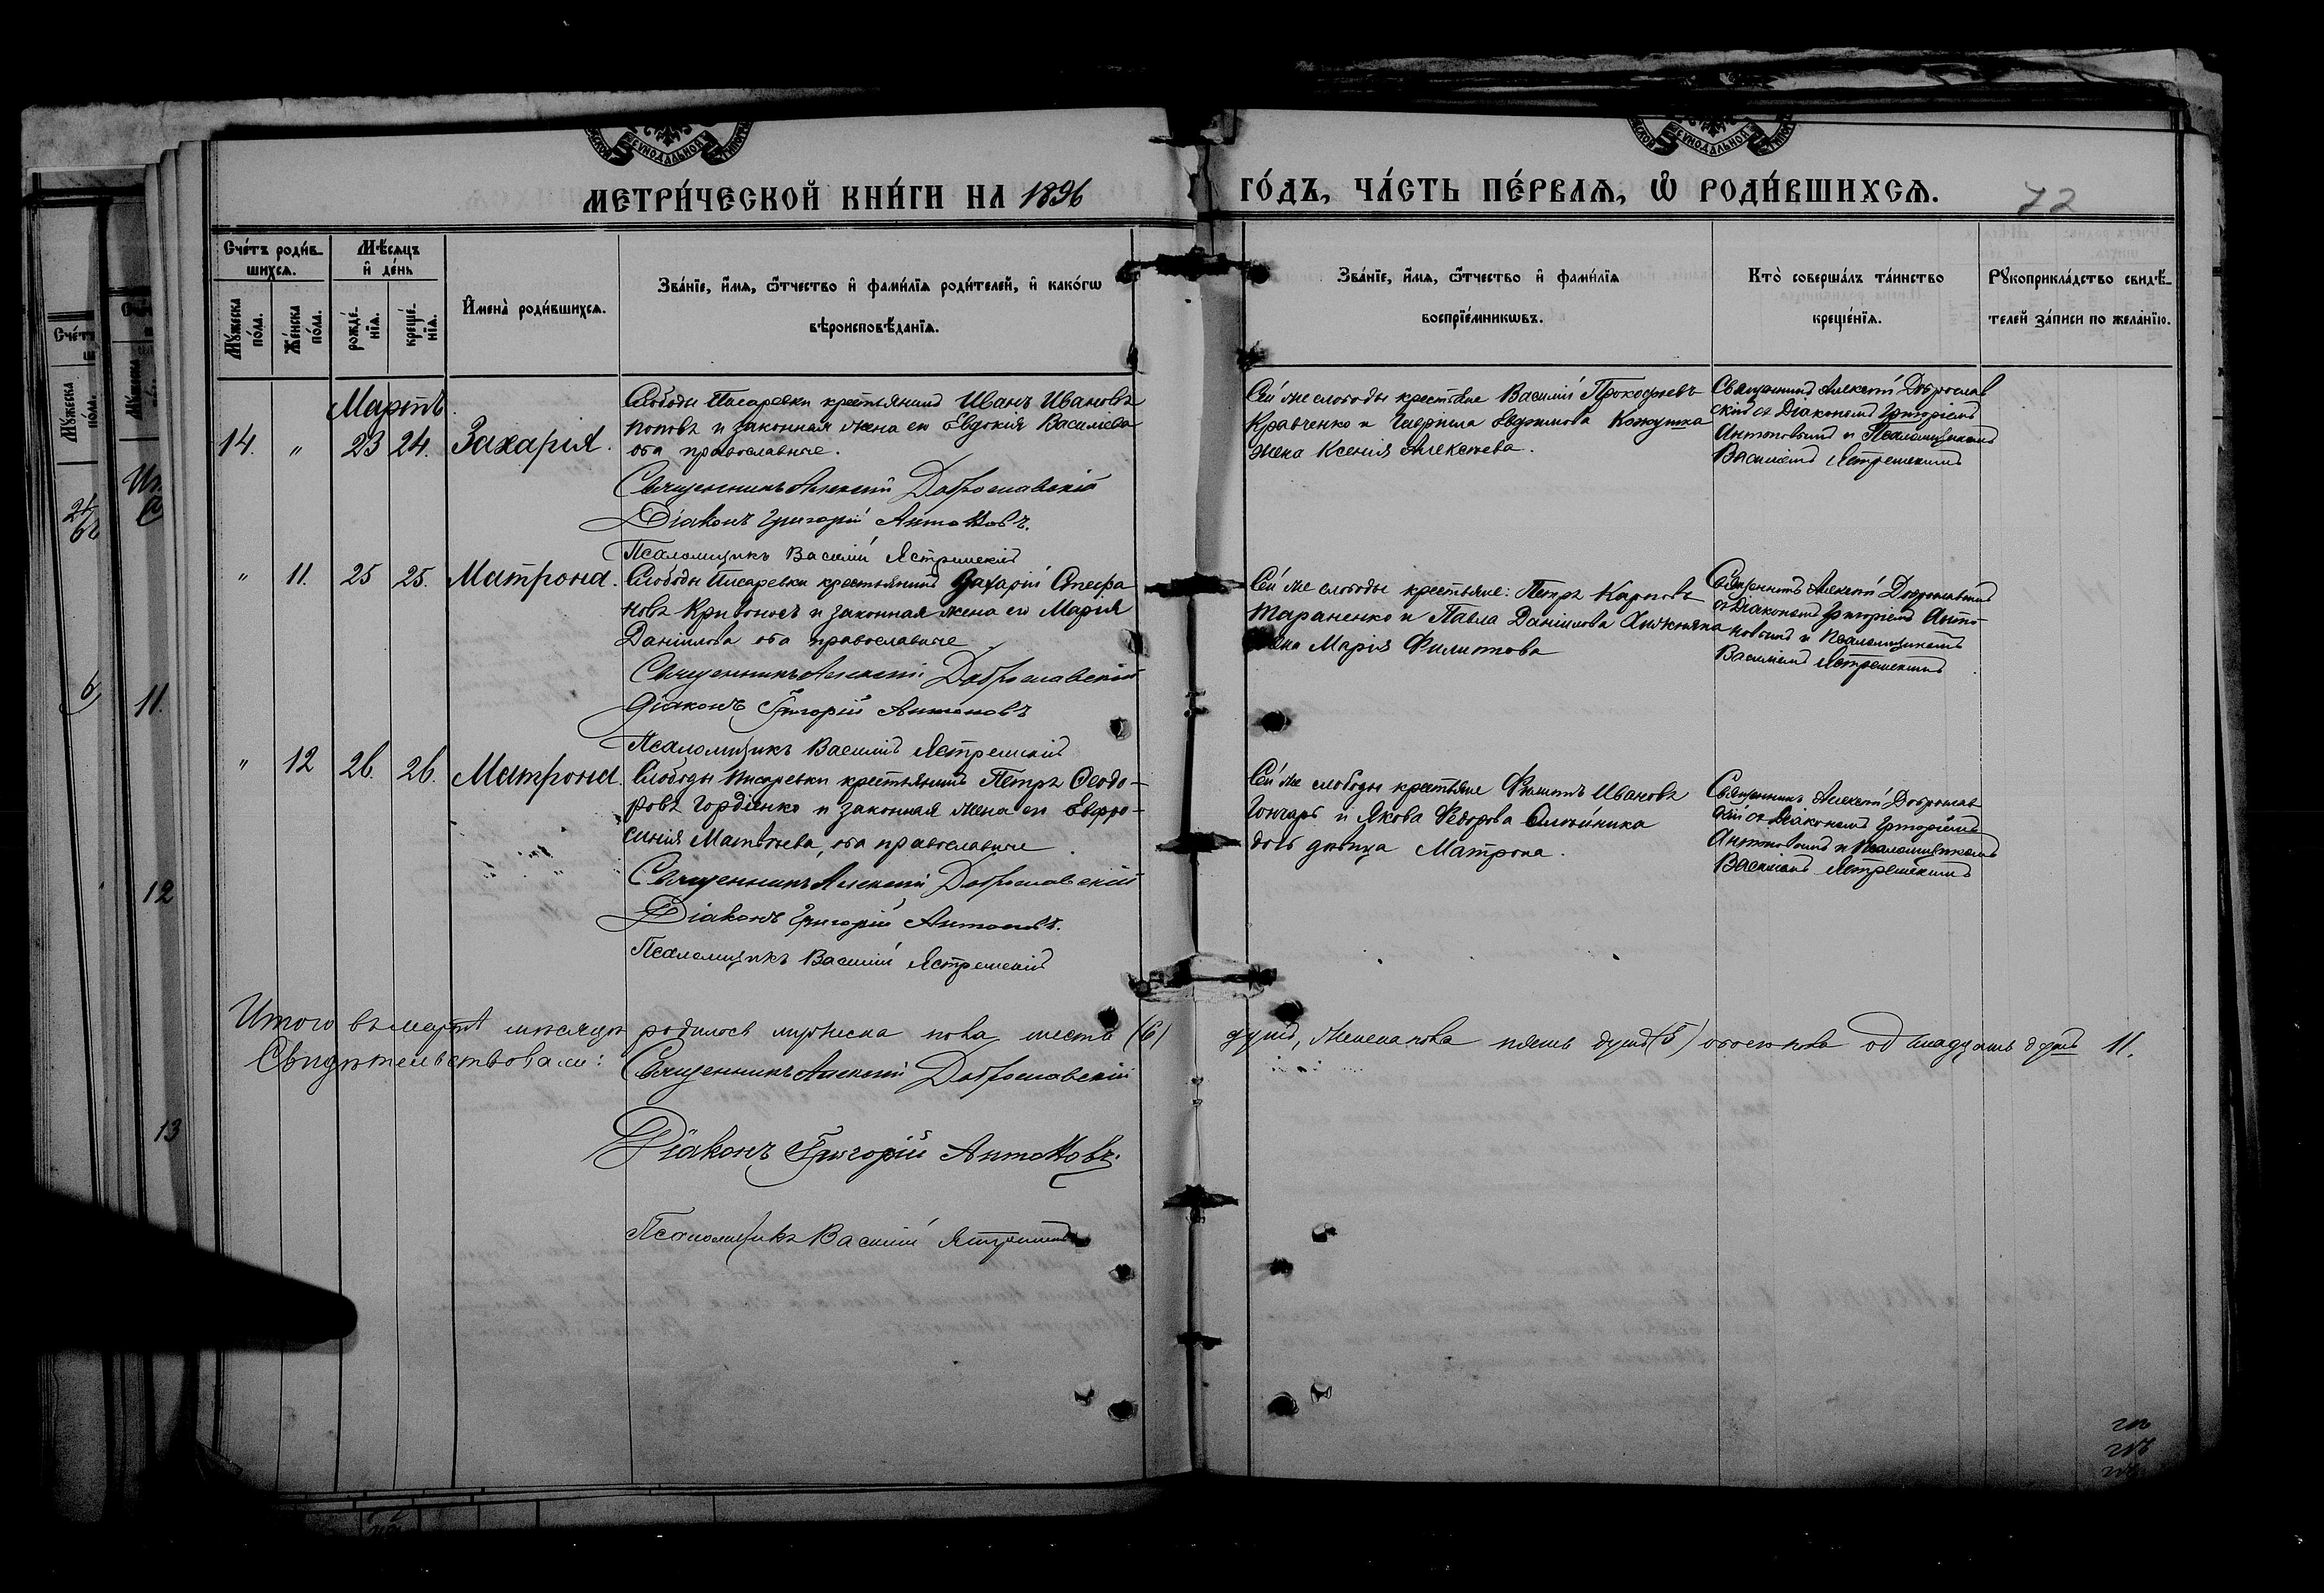 МЕТРИ́ЧЕСКОЙ КНИ́ГИ НА 1896 ГО́ДЪ, ЧА́СТЬ ПЕ́РВАѦ, Ѡ҆ РОДИ́ВШИХСѦ.
72
Сче́тъ роди́в-
шихсѧ.
Мѣ́сѧцъ
и҆ де́нь
Мꙋ́жеска
по́ла.
Же́нска
по́ла.
рожде́-
нїѧ.
креще́-
нїѧ.
И҆мена̀ роди́вшихсѧ.
Зва́нїе, и҆́мѧ, ѻ҆́тчество и҆ фами́лїѧ роди́телей, и҆ како́гѡ
вѣроисповѣ́данїѧ.
Зва́нїе, и҆́мѧ, ѻ҆́тчество и҆ фами́лїѧ
воспрїе́мникѡвъ.
Кто̀ соверша́лъ та́инство
креще́нїѧ.
Рꙋкоприкла́дство свидѣ́-
телей за́писи по жела́нїю.
Мартъ
14. " 23 24. Захарія.
Слободы Писаревки крестьянинъ Иванъ Ивановъ
Поповъ и законная жена его Евдокія Васильева
оба православные.
Священникъ Алексій Доброславскій
Діаконъ Григорій Антоновъ.
Псаломщикъ Василій Ястремскій
Сей же слободы крестьяне Василій Прокофьевъ
Кравченко и Гавріила Евфимова Кожушка
жена Ксенія Алексѣева.
Священникъ Алексій Доброслав
скій съ Діакономъ Григоріемъ
Антоновымъ и Псаломщикомъ
Василіемъ Ястремскимъ
" 11. 25 25. Матрона.
Слободы Писаревки крестьянинъ Захарій Стефа
новъ Кривоносъ и законная жена его Марія
Даніилова оба православные
Священникъ Алексій Доброславскій
Діаконъ Григорій Антоновъ
Псаломщикъ Василій Ястремскій
Сей же слободы крестьяне: Петръ Карповъ
Тараненко и Павла Даніилова
жена Марія Филиппова
Священникъ Алексій Доброславскій
съ Діакономъ Григоріемъ Анто-
новымъ и Псаломщикомъ
Василіемъ Ястремскимъ
" 12 26. 26. Матрона.
Слободы Писаревки крестьянинъ Петръ Ѳеодо-
ровъ Гордіенко и законная жена его Евфро-
синія Матвѣева, оба православные
Священникъ Алексій Доброславскій
Діаконъ Григорій Антоновъ.
Псаломщикъ Василій Ястремскій
Сей же слободы крестьяне Филиппъ Ивановъ
Гончаръ и Якова Ѳедорова Олейника
дочь дѣвица Матрона.
Священникъ Алексій Доброслав
скій съ Діакономъ Григоріемъ
Антоновымъ и Псаломщикомъ
Василіемъ Ястремскимъ
Итого въ мартѣ мѣсяцѣ родилось мужеска пола шесть (6) душъ, женска пола пять душъ (5) обоего пола одинадцать душъ 11.
Свидѣтельствовали: Священникъ Алексій Доброславскій
Діаконъ Григорій Антоновъ.
Псаломщикъ Василій Ястремскій
11.
12
13